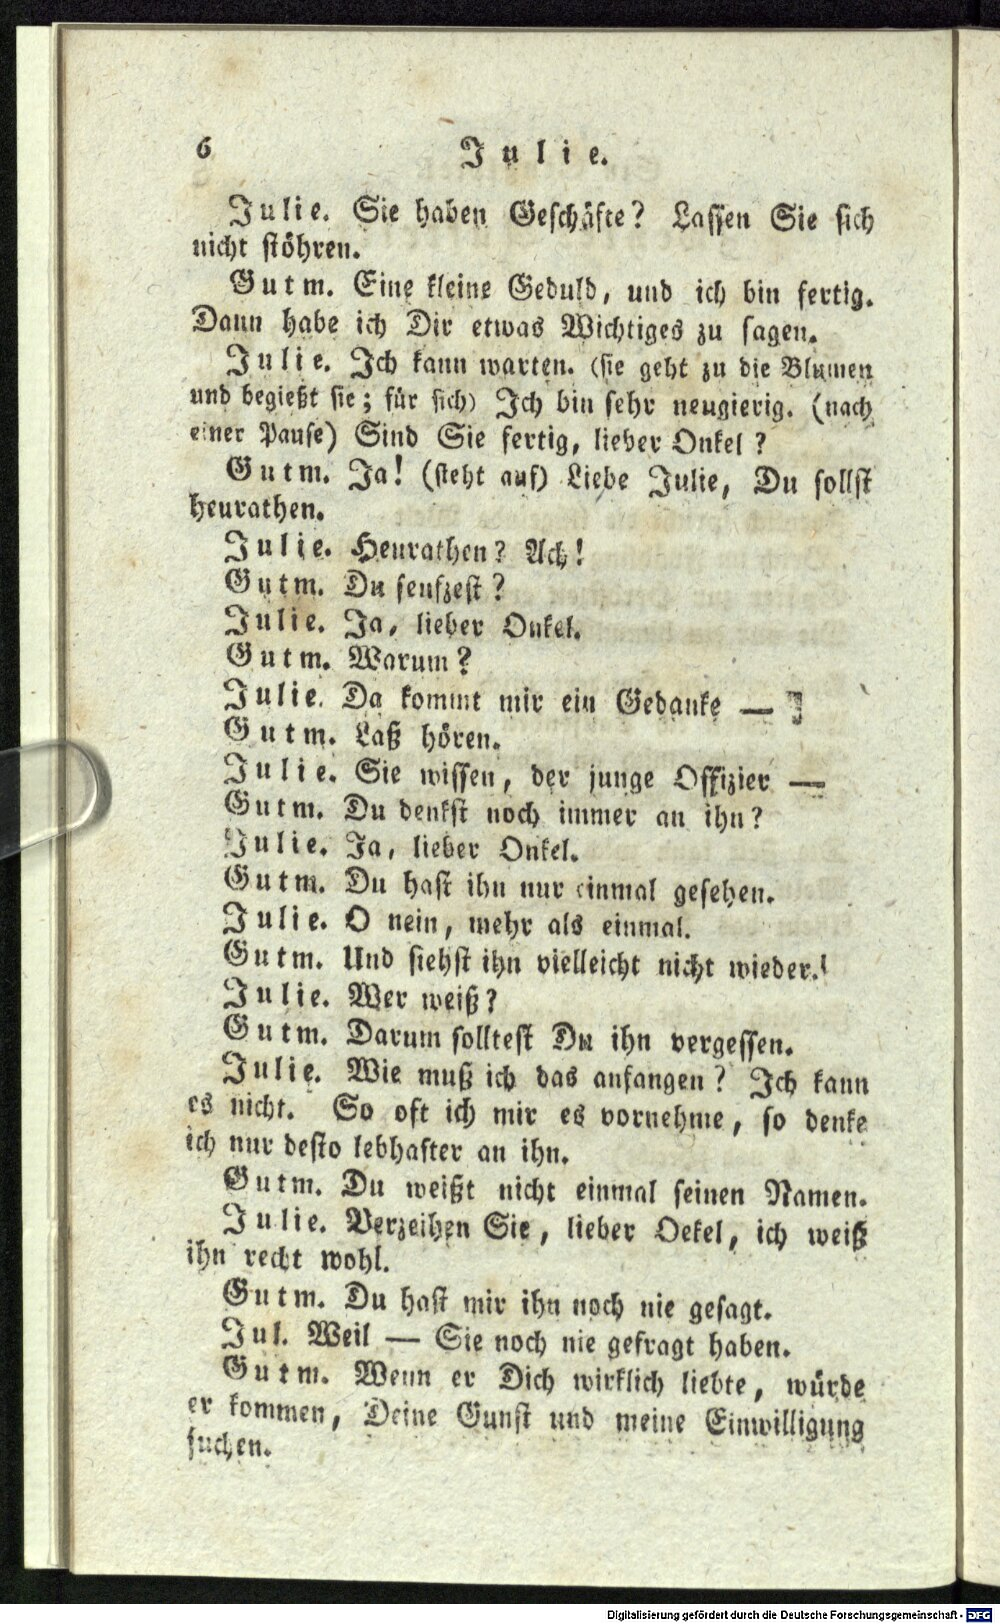 6 Julie.
Julie. Sie haben Geschäfte? Lassen Sie sich
nicht stöhren.
Gutm. Eine kleine Geduld, und ich bin fertig.
Dann habe ich Dir etwas Wichtiges zu sagen.
Julie. Ich kann warten. (sie geht zu die Blumen
und begießt sie; für sich) Ich bin sehr neugierig. (nach
einer Pause) Sind Sie fertig, lieber Onkel?
Gutm. Ja! (steht auf) Liebe Julie, Du sollst
heurathen.
Julie. Heurathen? Ach!
Gutm. Du seufzest?
Julie. Ja, lieber Onkel.
Gutm. Warum?
Julie. Da kommt mir ein Gedanke —
Gutm. Laß hören.
Julie. Sie wissen, der junge Offizier —
Gutm. Du denkst noch immer an ihn?
Julie. Ja, lieber Onkel.
Gutm. Du hast ihn nur einmal gesehen.
Julie. O nein, mehr als einmal.
Gutm. Und siehst ihn vielleicht nicht wieder.
Julie. Wer weiß?
Gutm. Darum solltest Du ihn vergessen.
Julie. Wie muß ich das anfangen? Ich kann
es nicht. So oft ich mir es vornehme, so denke
ich nur desto lebhafter an ihn.
Gutm. Du weißt nicht einmal seinen Namen.
Julie. Verzeihen Sie, lieber Oekel, ich weiß
ihn recht wohl.
Gutm. Du hast mir ihn noch nie gesagt.
Jul. Weil — Sie noch nie gefragt haben.
Gutm. Wenn er Dich wirklich liebte, würde
er kommen, Deine Gunst und meine Einwilligung
suchen.
Digitalisierung gefördert durch die Deutsche Forschungsgemeinschaft - DFG